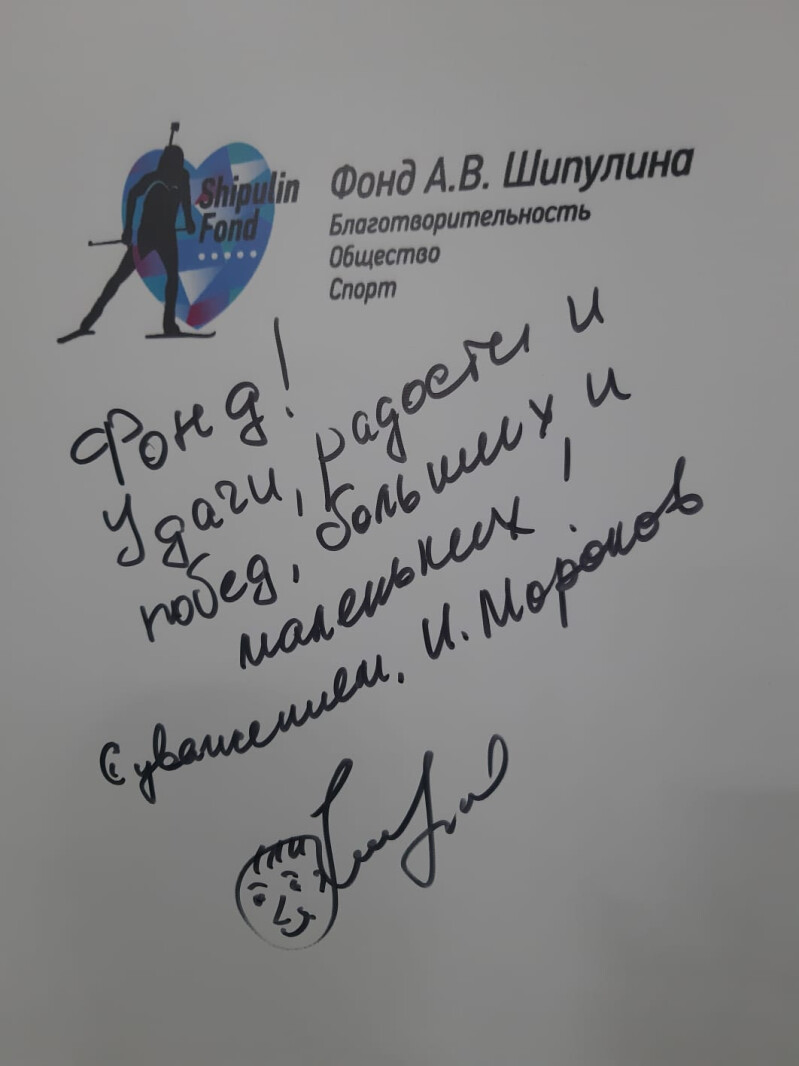 Shipulin
Fond
Фонд А.В. Шипулина
Благотворительность
Общество
Спорт
Фонд!
Удачи, радости и
побед, больших и
маленьких!
С уважением, И.